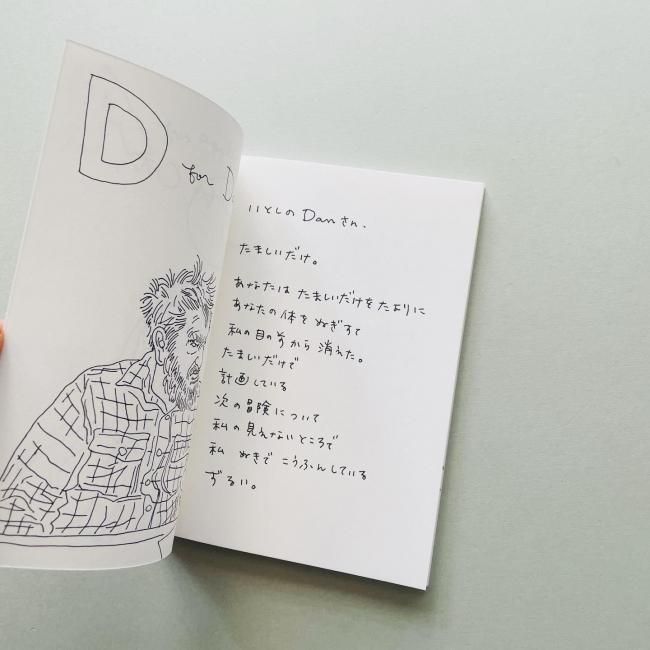 D for D
いとしの Danさん、
たましいだけ。
あなたは たましいだけを たよりに
あなたの体を ぬぎすて
私の目の前から 消えた。
たましいだけで
計画している
次の冒険について
私の見えないところで
私 ぬきで こうふんしている
ずるい。